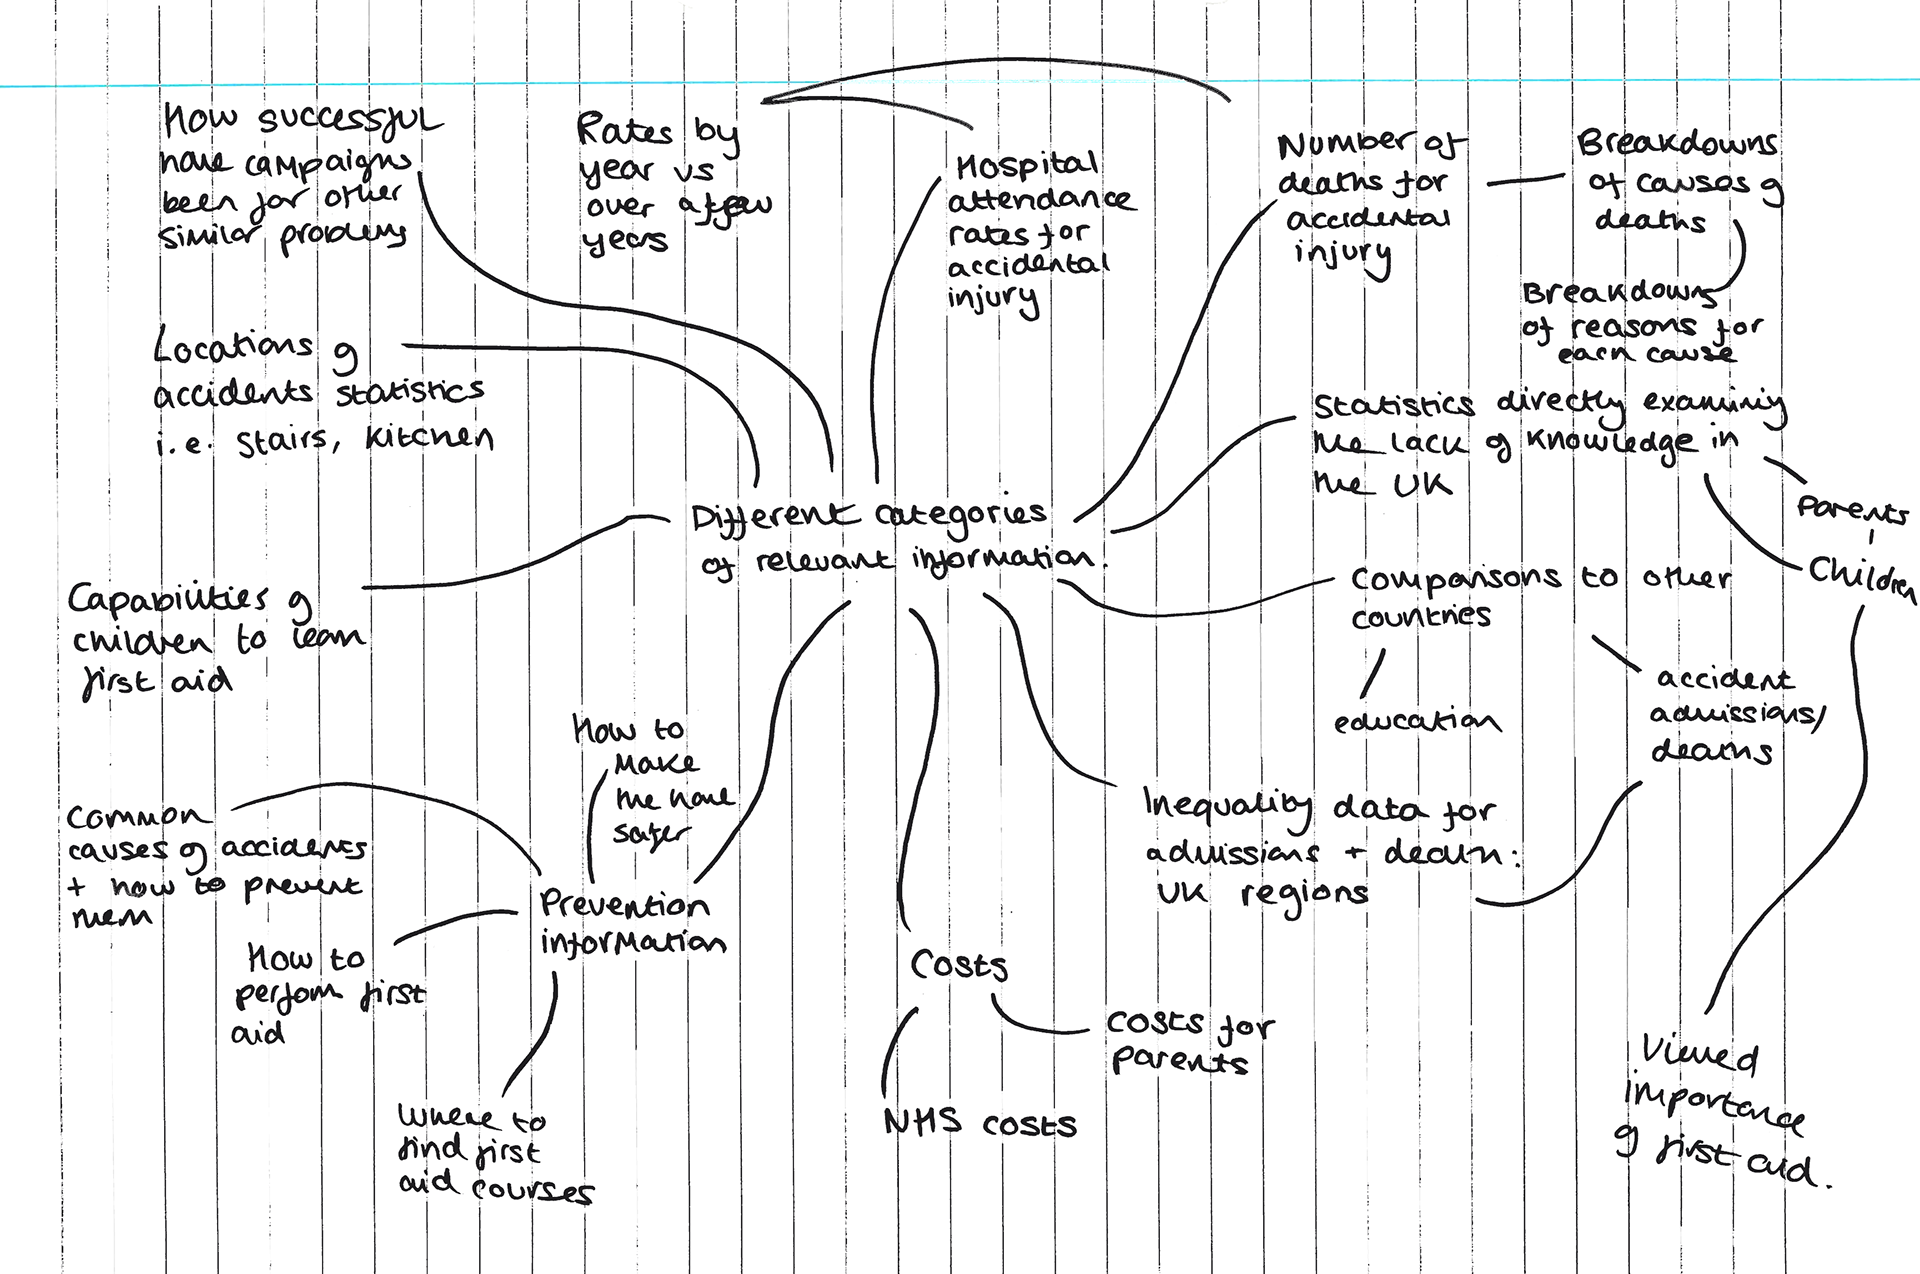 How successful
have campaigns
been for other
similar problems
Rates by
year vs
over a few
years
Hospital
attendance
rates for
accidental
injury
Number of
deaths for
accidental
injury
Breakdowns
of causes of
deaths
Breakdowns
of reasons for
each cause
Locations of
accidents statistics
i.e. stairs, kitchen
Statistics directly examining
the lack of knowledge in
the UK
Parents
Children
Different categories
of relevant information.
Capabilities of
children to learn
first aid
Comparisons to other
countries
education
accident
admissions/
deaths
How to
make
the home
safer
Common
causes of accidents
+ how to prevent
them
Inequality data for
admissions + death:
UK regions
Prevention
information
How to
perform first
aid
Costs
Costs for
parents
NHS costs
Where to
find first
aid courses
Viewed
importance
of first aid.